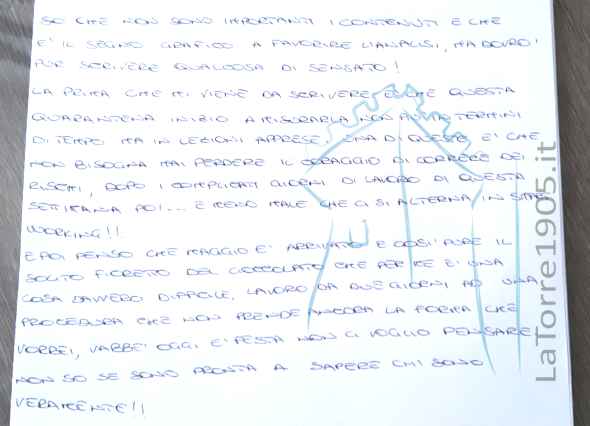 SO CHE NON SONO IMPORTANTI I CONTENUTI E CHE
E' IL SEGNO GRAFICO A FAVORIRE L'ANALISI, MA DOVRO'
PUR SCRIVERE QUALCOSA DI SENSATO!
LA PRIMA CHE MI VIENE DA SCRIVERE E' CHE QUESTA
QUARANTENA INIZIO A MISURARLA NON IN TERMINI
DI TEMPO MA IN LEZIONI APPRESE. UNA DI QUESTE E' CHE
NON BISOGNA MAI PERDERE IL CORAGGIO DI CORRERE DEI
RISCHI, DOPO I COMPLICATI GIORNI DI LAVORO DI QUESTA
SETTIMANA POI... E MENO MALE CHE CI SI ALTERNA IN SMART
WORKING!!
E POI PENSO CHE MAGGIO E' ARRIVATO E COSI' PURE IL
SOLITO FIORETTO DEL CIOCCOLATO CHE PER ME E' UNA
COSA DAVVERO DIFFICILE, LAVORO DA DUE GIORNI AD UNA
PROCEDURA CHE NON PRENDE ANCORA LA FORMA CHE
VORREI, VABBE' OGGI E' FESTA NON CI VOGLIO PENSARE
NON SO SE SONO PRONTA A SAPERE CHI SONO
VERAMENTE!!
LaTorre1905.it